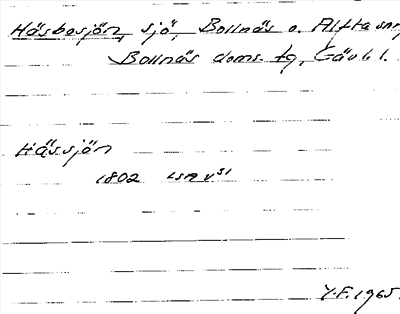 Häsbosjön, sjö, Bollnäs o. Alfta snr
Bollnäs doms. tg, Gävl. l.
Hässjön
1802 LSA V 51
Y.F. 1965